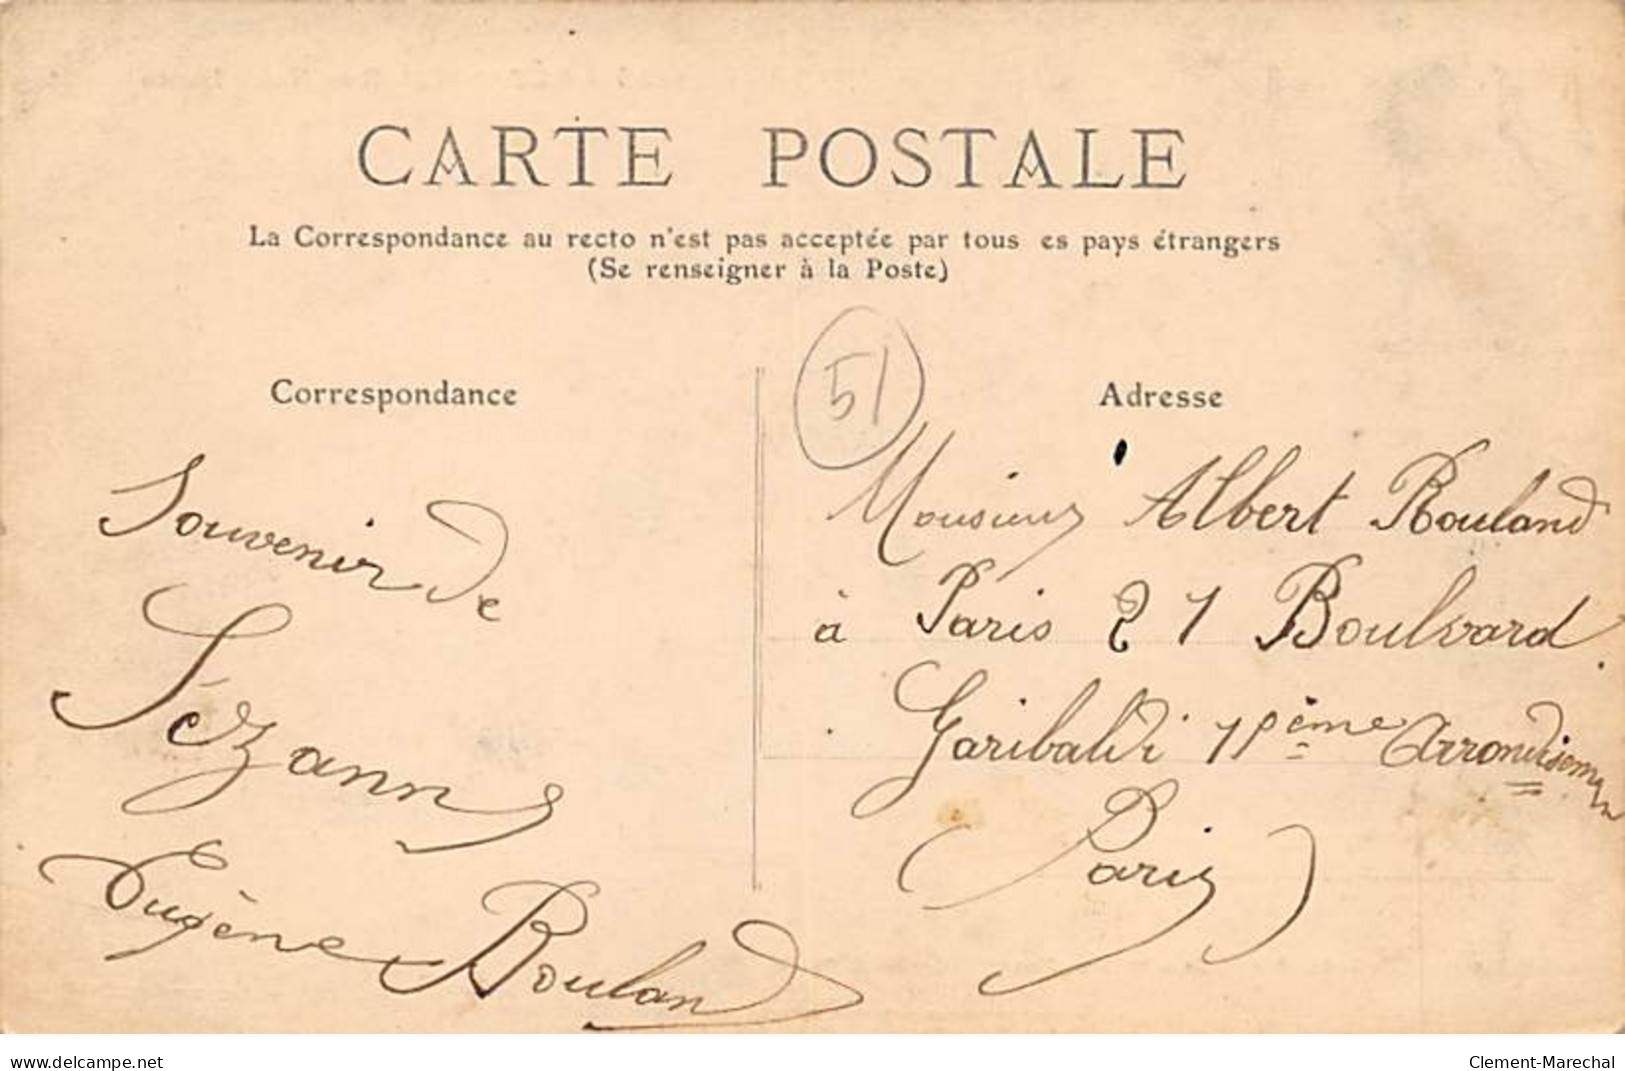 CARTE POSTALE
La Correspondance au recto n'est pas acceptée par tous es pays étrangers
(Se renseigner à la Poste)
Correspondance
Souvenir de
Sézanne
Eugène Rouland
51
Adresse
Monsieur Albert Rouland
à Paris 21 Boulvard
Garibaldi 15ème Arrondisem
(Paris)
www.delcampe.net
Clement-Marechal